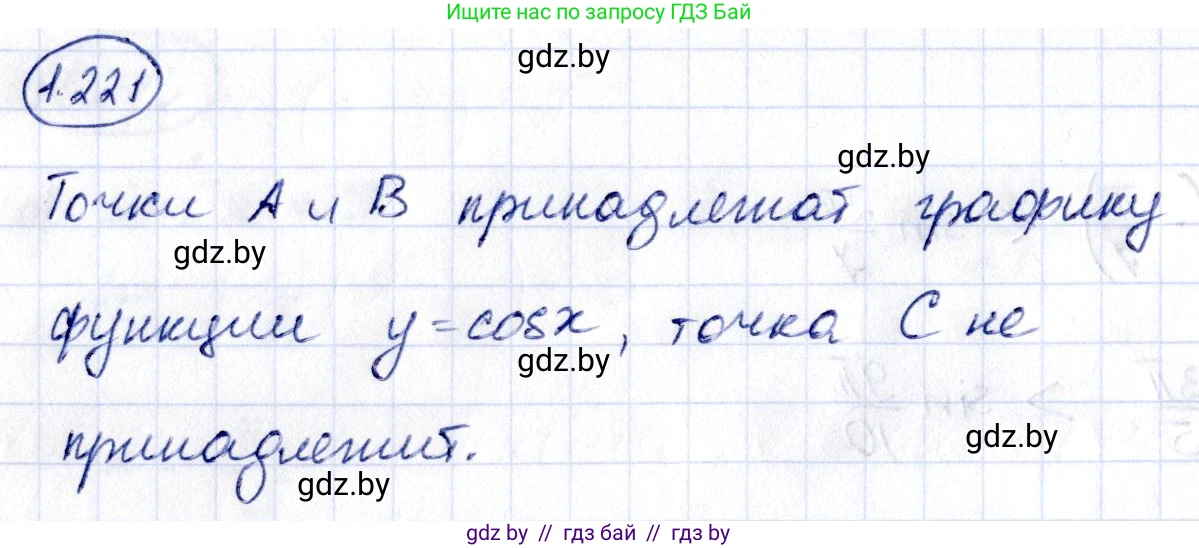 Ищите нас по запросу ГДЗ Бай
gdz.by
1.221
gdz.by
Точки A и B принадлежат графику
gdz.by
функции y = cosx, точка C не
gdz.by
gdz.by
принадлежит.
gdz.by
gdz.by // гдз бай // гдз.by